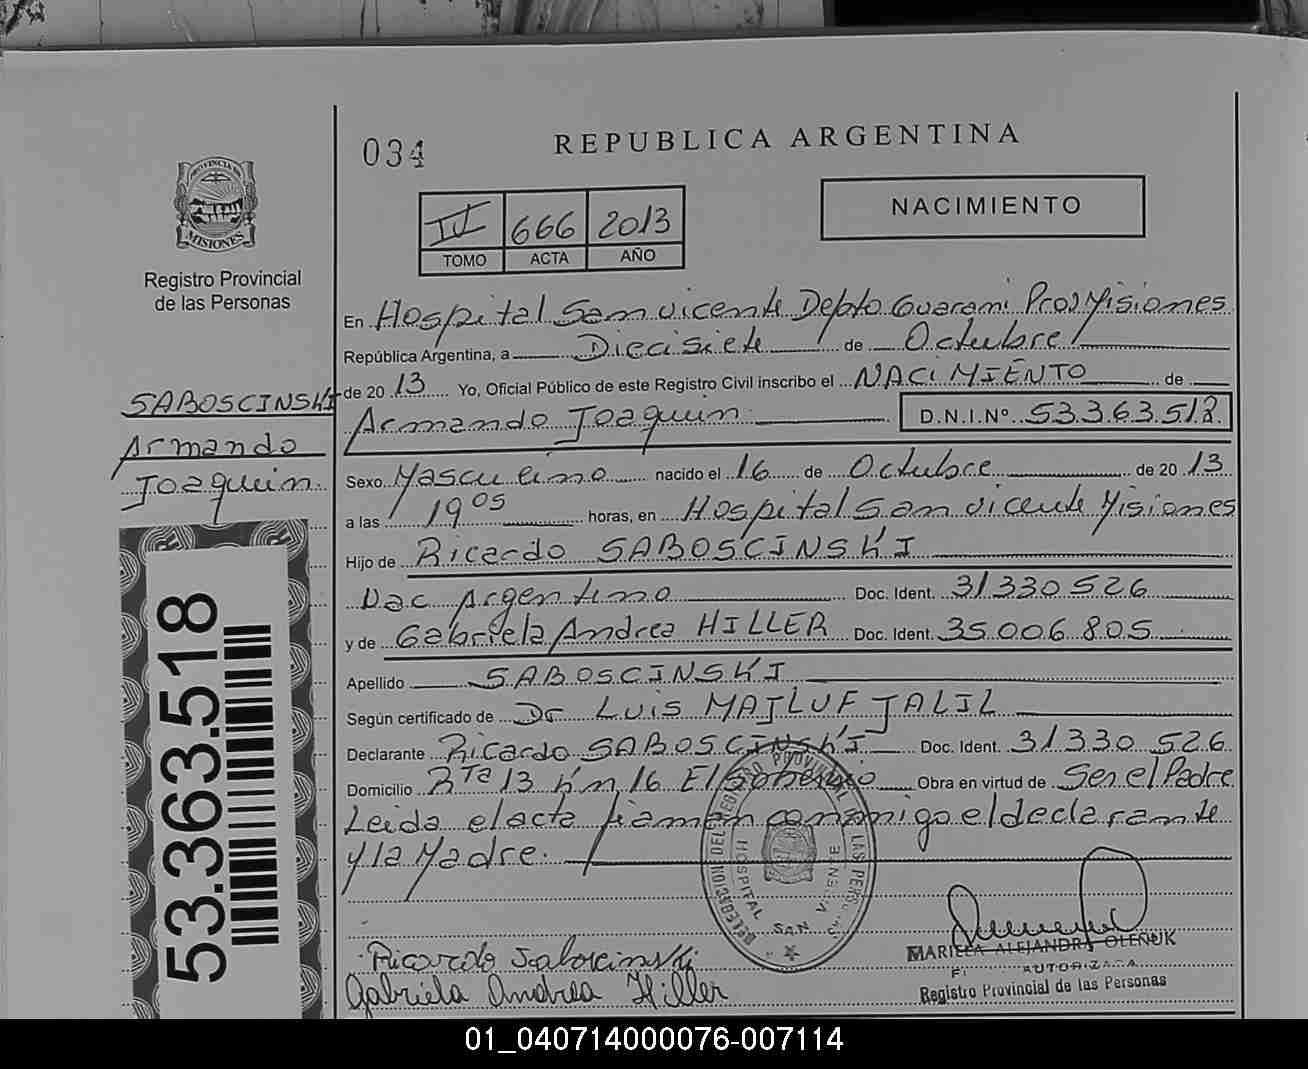 034
REPUBLICA ARGENTINA
PROVINCIA DE
MISIONES
Registro Provincial
de las Personas
II 666 2013
TOMO ACTA AÑO
NACIMIENTO
En Hospital San vicente Depto Guarani Prov Misiones
República Argentina, a Diecisiete de Octubre
de 2013 Yo, Oficial Público de este Registro Civil inscribo el NACIMIENTO de
Armando Joaquin D.N.I.Nº 53.363.518
SABOSCINSKI
Armando
Joaquin
Sexo Masculino nacido el 16 de Octubre de 2013
a las 19 05 horas, en Hospital San vicente Misiones
Hijo de Ricardo SABOSCINSKI
Nac Argentino Doc. Ident. 31330526
y de Gabriela Andrea HILLER Doc. Ident. 35.006.805
Apellido SABOSCINSKI
Según certificado de Dr Luis MAJLUF JALIL
Declarante Ricardo SABOSCINSKI Doc. Ident. 31330526
Domicilio Rta 13 Km 16 El Soberbio Obra en virtud de Ser el Padre
Leida el acta firman conmigo el declarante
y la Madre.
53.363.518
DELEGACION DEL REGISTRO PROVINCIAL DE LAS PERSONAS
HOSPITAL SAN VICENTE
Ricardo Saboscinski
Gabriela Andrea Hiller
MARIELA ALEJANDRA OLEÑUK
AUTORIZADA
Registro Provincial de las Personas
01_040714000076-007114